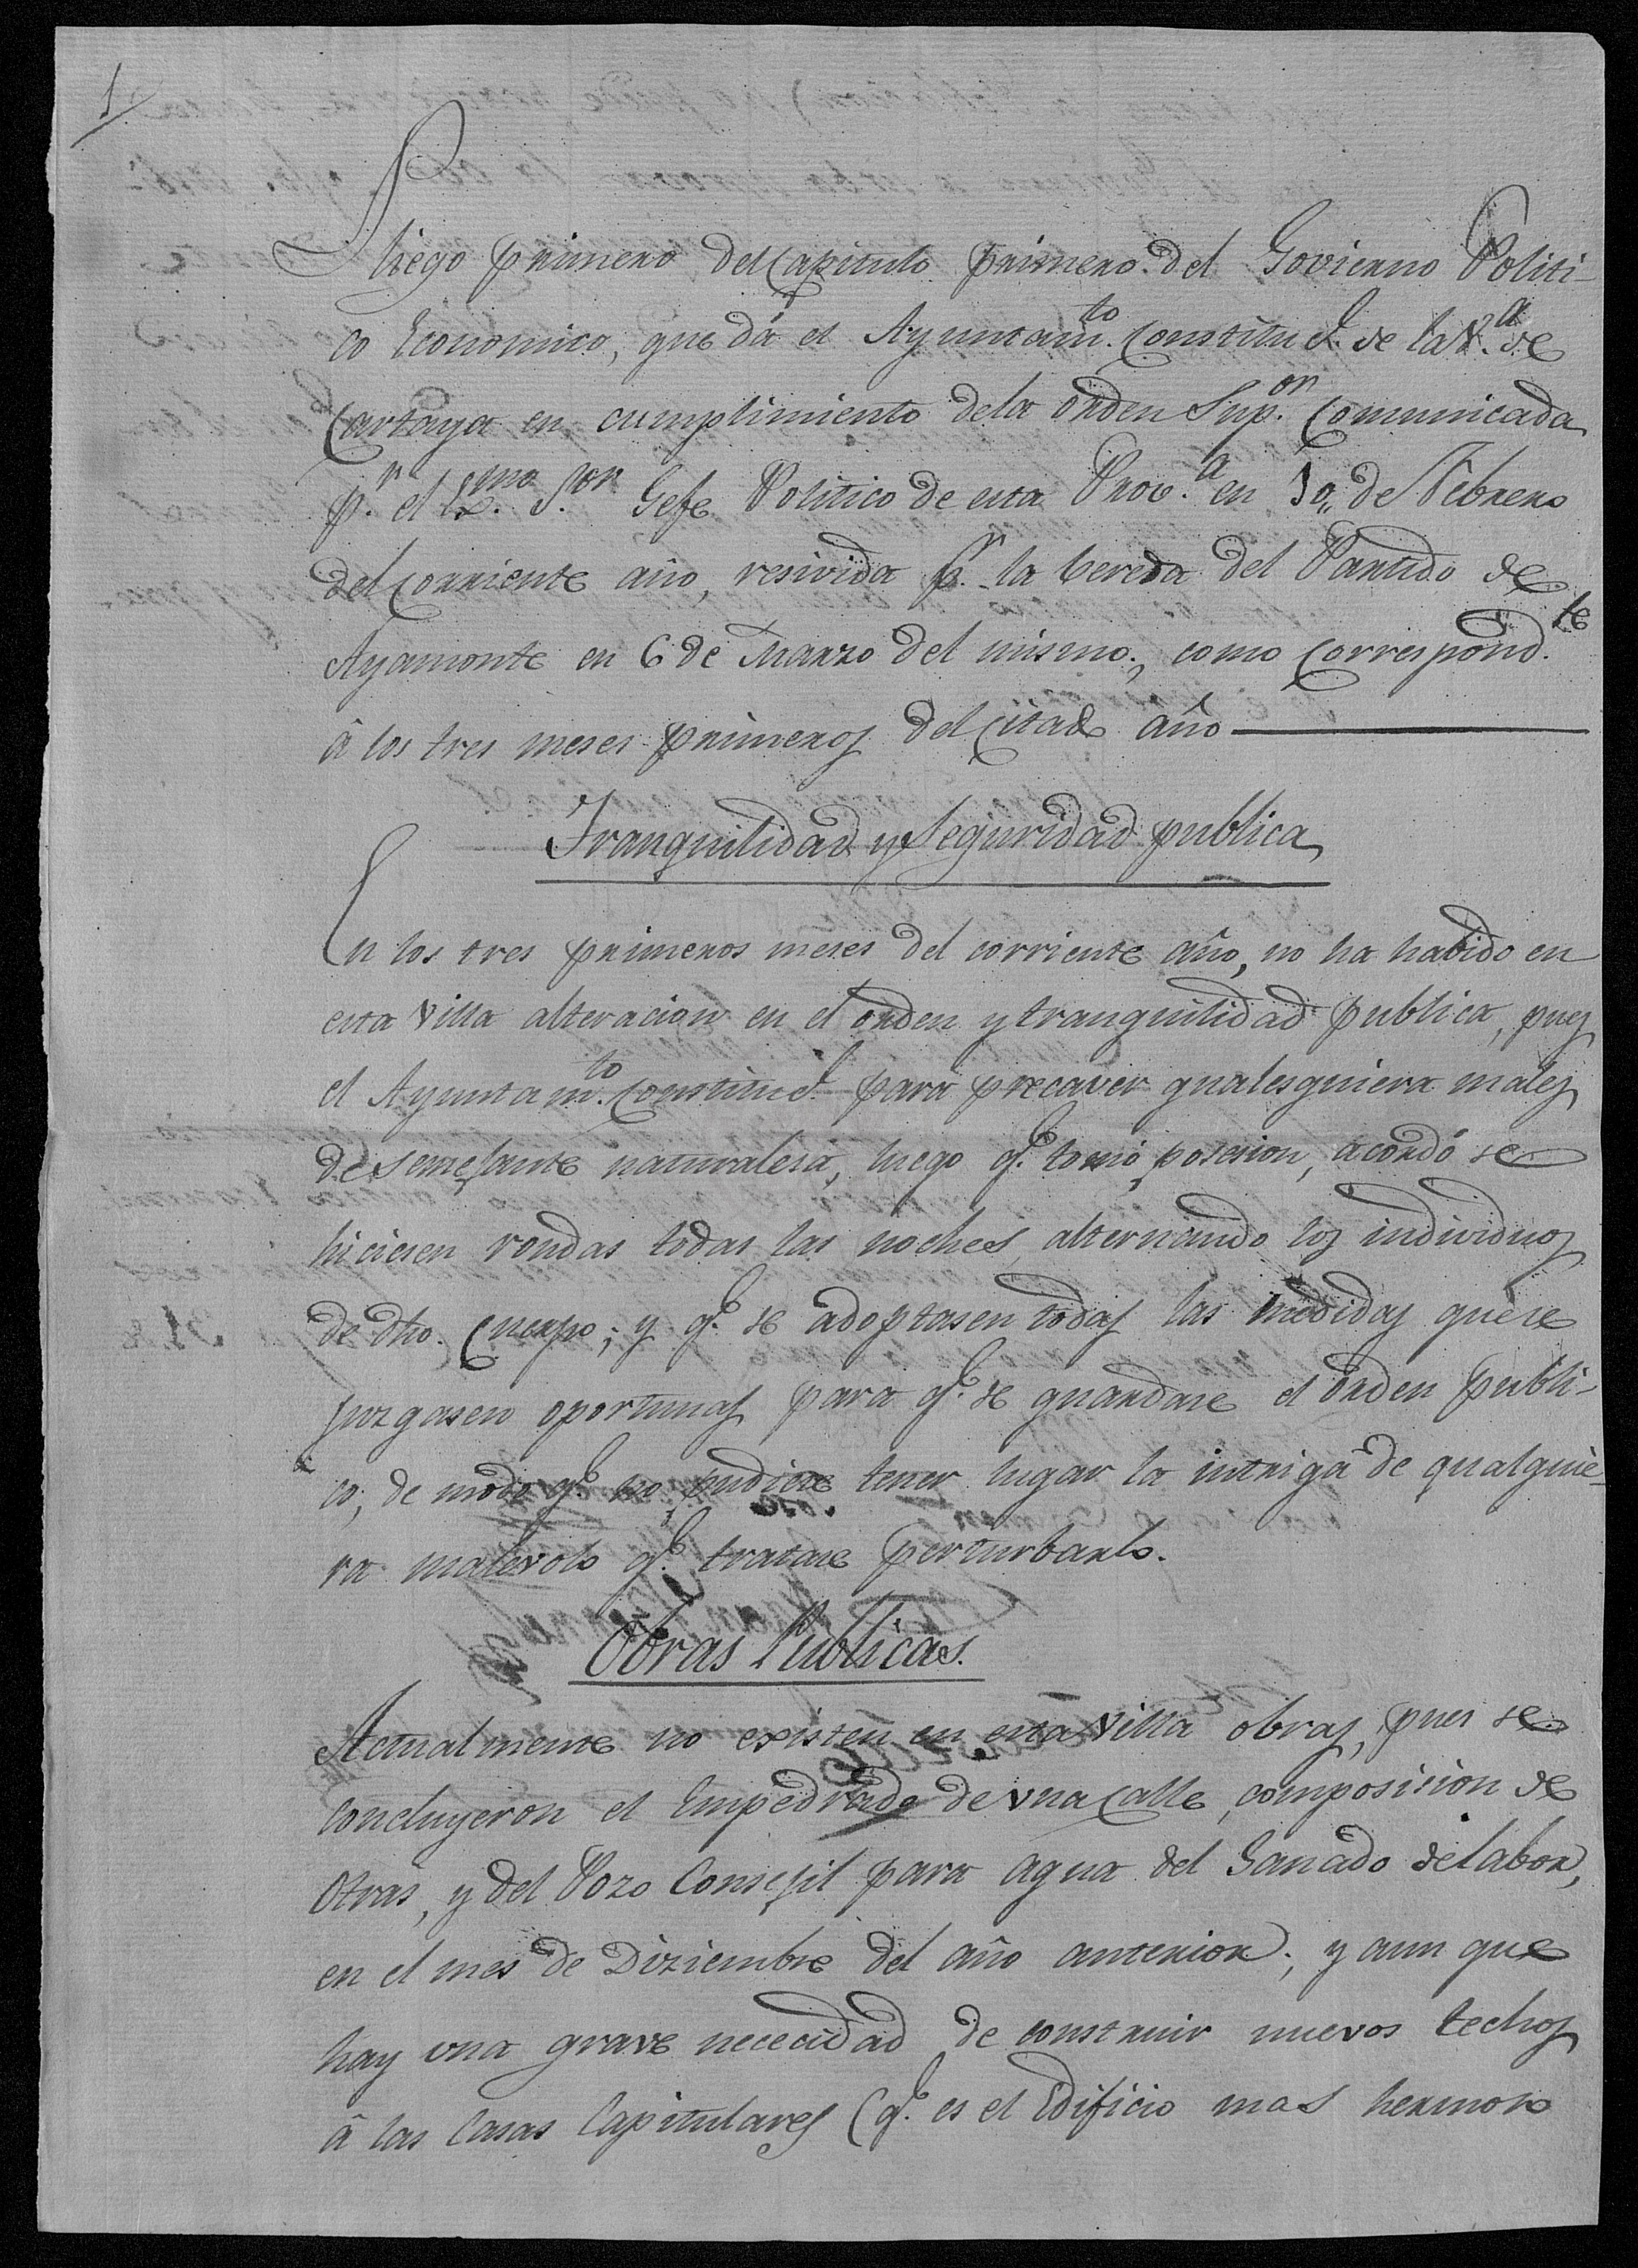 1
Pliego primero del Capitulo primero del Govierno Politi-
co Economico, que dá el Ayuntam.to Constitu.l de la V.a de
Cartaya en cumplimiento dela orden Sup.or Comunicada
p.r el Ex.mo S.or Gefe Politico de esta Prov.a en 10,, de Febrero
del Corriente año, resivida p.r la bereda del Partido de
Ayamonte en 6 de Marzo del mismo; como Correspond.te
â los tres meses primeros del Citado año
Tranquilidad y Seguridad publica
En los tres primeros meses del corriente año, no ha habido en
esta Villa alteracion en el orden y tranquilidad publica, pues
el Ayuntam.to Constitu.l para precaver qualesquiera males
de semejante naturalesa, luego q.e tomó posesion, acordó se
hiciesen rondas todas las noches, alternando los individuos
de dho. Cuerpo; y q.e se adoptasen todas las medidas que se
juzgasen oportunas para q.e se guardase el orden publi-
co, de modo q.e no pudiese tener lugar la intriga de qualquie-
ra malevolo q.e tratase perturbarlo.
Obras Publicas.
Actualmente no existen en esta Villa obras, pues se
concluyeron el Empedrado de una Calle, composision de
Otras, y del Pozo Consejil para agua del Ganado de labor,
en el mes de Diziembre del año anterior; y aun que
hay una grave nececidad de construir nuevos techos
â las Casas Capitulares (q.e es el Edificio mas hermoso